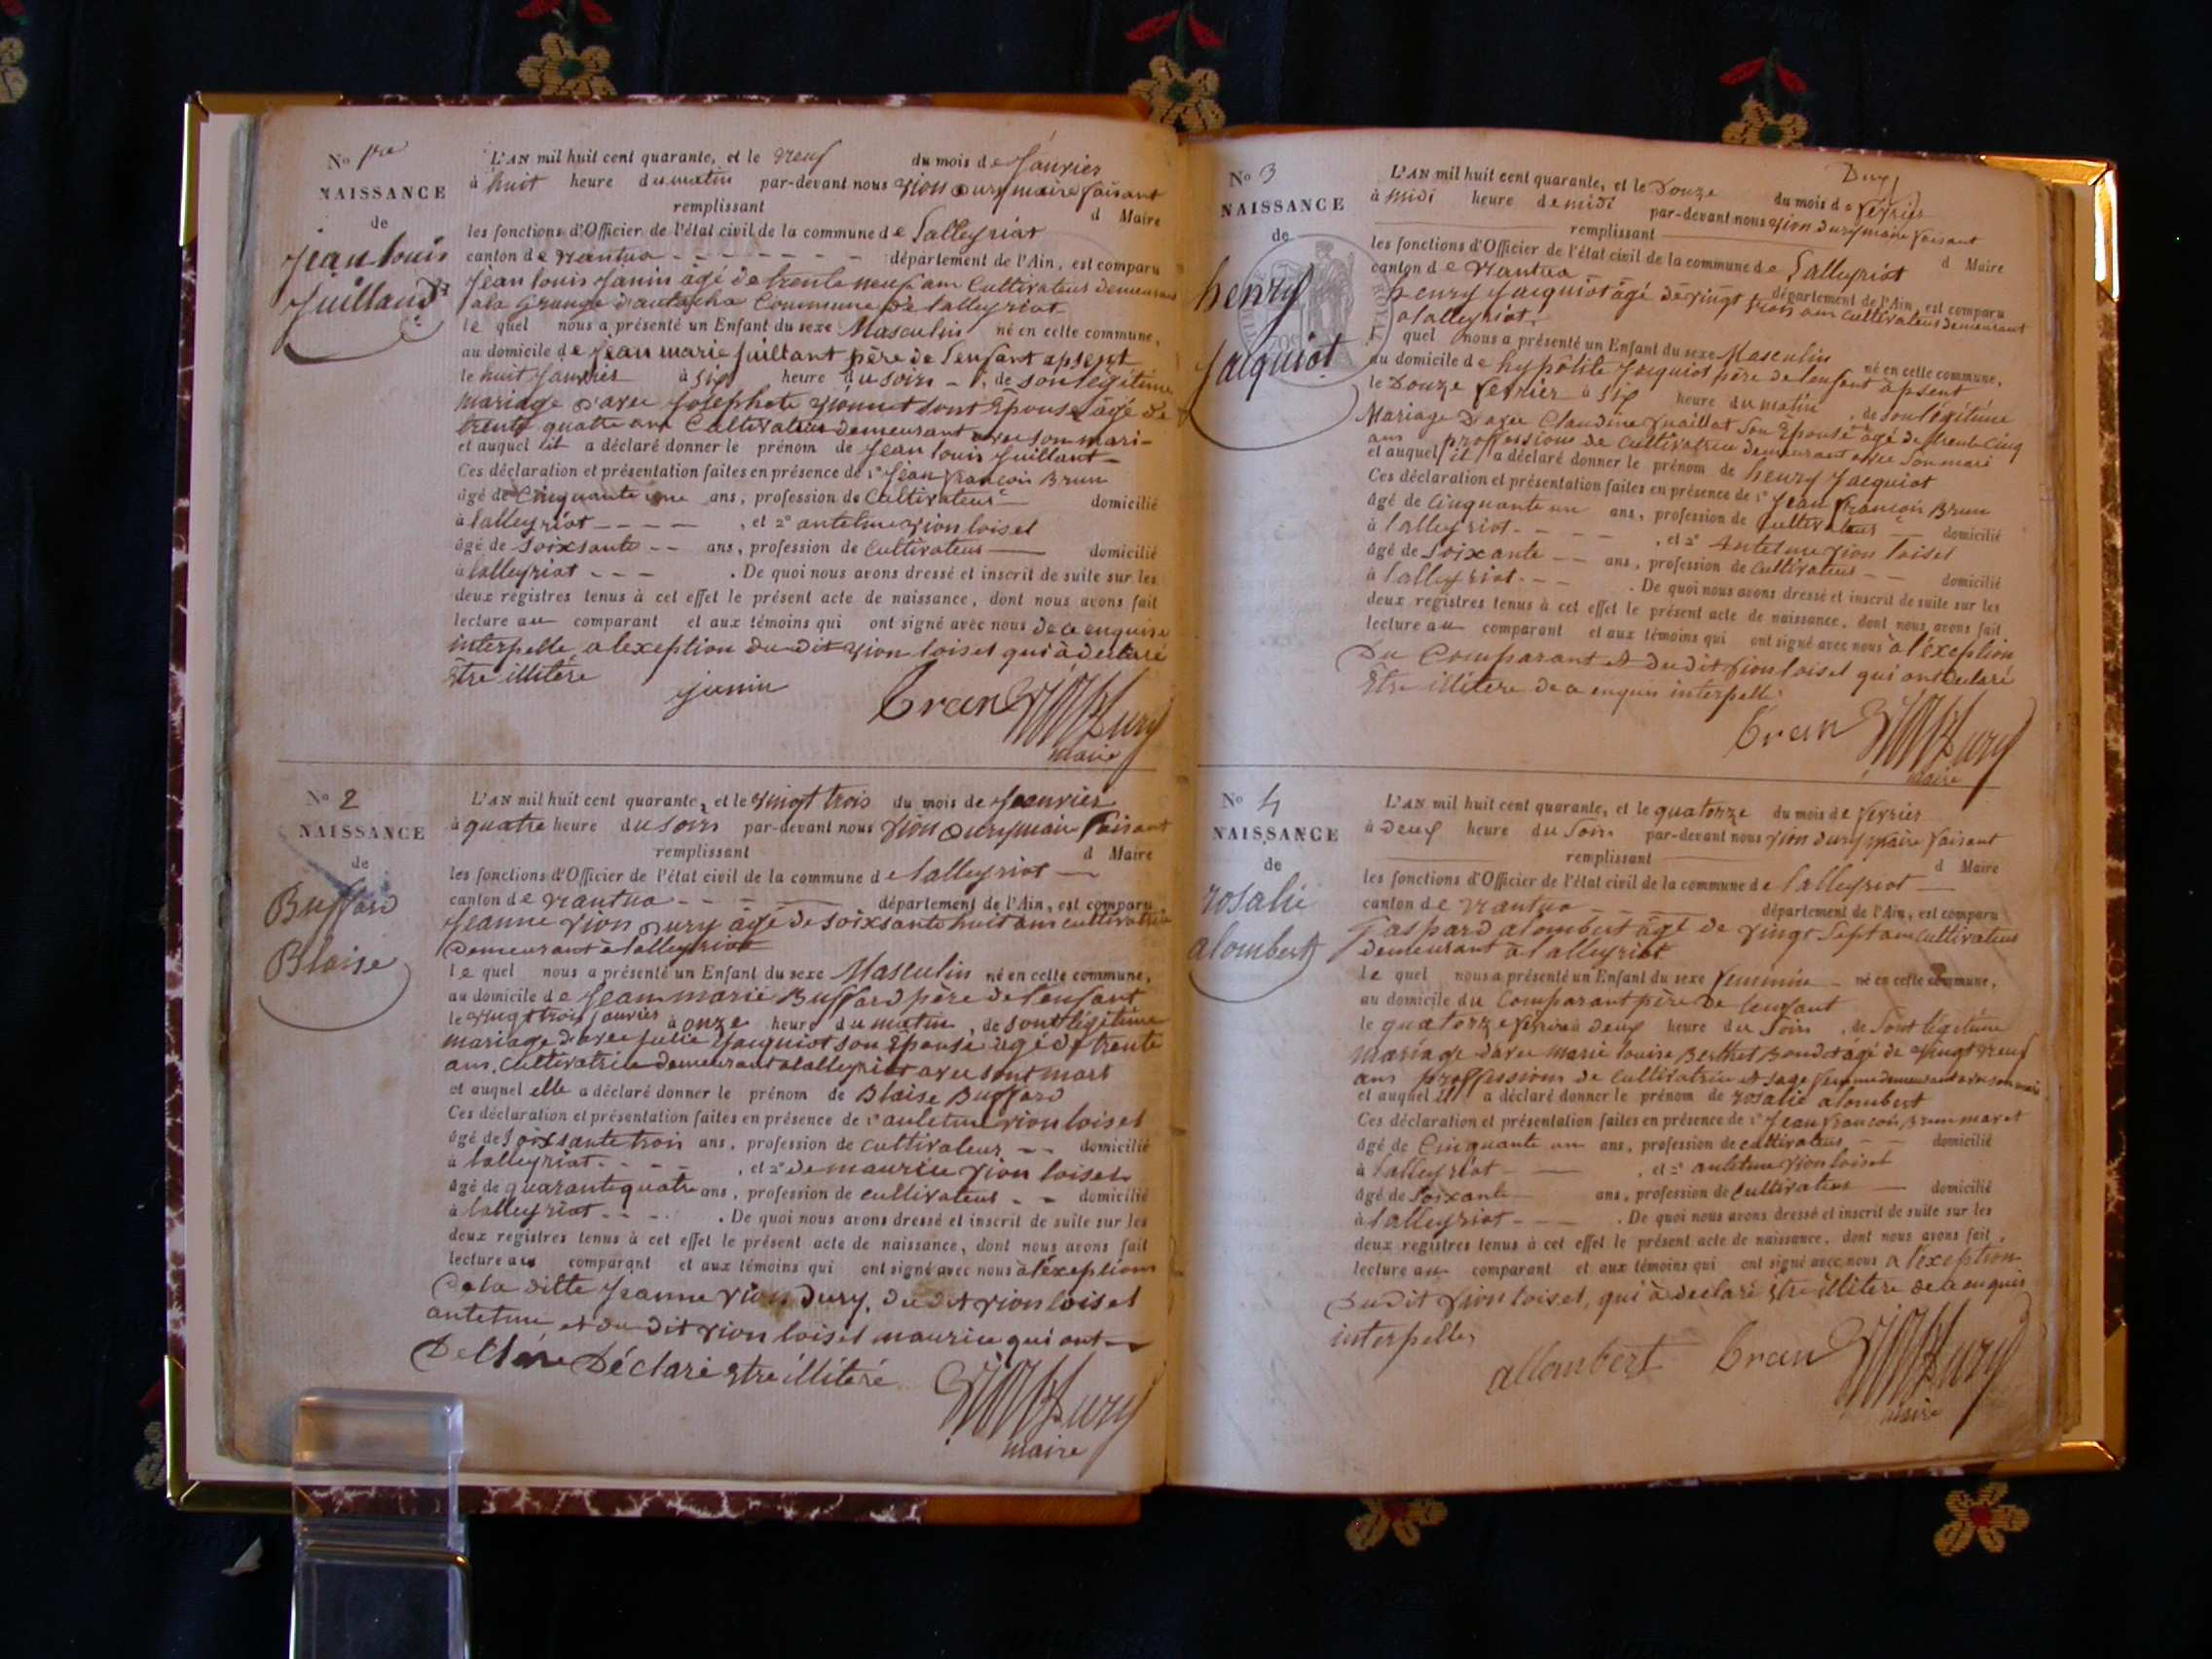 No 1re
NAISSANCE
de
jean louis
juilland
L'AN mil huit cent quarante, et le neuf du mois de Janvier
à huit heure du matin par-devant nous vion dury maire faisant
remplissant d Maire
les fonctions d'Officier de l'état civil de la commune de lalleyriat
canton de nantua département de l'Ain, est comparu
jean louis janin agé de trente neuf ans Cultivateur demeurant
a la Grange Commune de lalleyriat
le quel nous a présenté un Enfant du sexe Masculin né en cette commune,
au domicile de jean marie juillant père de l'enfant apsent
le huit janvier à six heure du soirs, de son légitime
mariage d'avec Josephete son Epouse âgé de
trente quatre ans Cultivateur demeurant avec son mari
et auquel il a déclaré donner le prénom de jean louis juillant
Ces déclaration et présentation faites en présence de 1° jean françois Brun
âgé de Cinquante une ans, profession de Cultivateur domicilié
à lalleyriat, et 2° antelme vion loisel
âgé de soixsante ans, profession de Cultivateur domicilié
à lalleyriat. De quoi nous avons dressé et inscrit de suite sur les
deux registres tenus à cet effet le présent acte de naissance, dont nous avons fait
lecture au comparant et aux témoins qui ont signé avec nous de ce enquise
interpelle a lexeption du dit vion loisel qui à declaré
être illitéré
janin brun vion Dury
maire
No 2
NAISSANCE
de
Buffard
Blaise
L'AN mil huit cent quarante, et le vingt trois du mois de Janvier
à quatre heure du soirs par-devant nous vion dury maire faisant
remplissant d Maire
les fonctions d'Officier de l'état civil de la commune de lalleyriat
canton de nantua département de l'Ain, est comparu
Jeanne vion Dury agé de soixsante huit ans cultivatrice
demeurant à lalleyriat
le quel nous a présenté un Enfant du sexe Masculin né en cette commune,
au domicile de Jean marie Buffard père de l'enfant
le vingt trois janvier à onze heure du matin, de sont légitime
mariage d'avec julie jacquiot son Epouse agé de trente
ans. Cultivatrice demeurant a lalleyriat avec sont mari
et auquel elle a déclaré donner le prénom de Blaise Buffard
Ces déclaration et présentation faites en présence de 1° antelme vion loisel
âgé de soixsante trois ans, profession de cultivateur domicilié
à lalleyriat, et 2° de maurice vion loisel
âgé de quarante quatre ans, profession de cultivateur domicilié
à lalleyriat. De quoi nous avons dressé et inscrit de suite sur les
deux registres tenus à cet effet le présent acte de naissance, dont nous avons fait
lecture au comparant et aux témoins qui ont signé avec nous à l'exeption
de la ditte Jeanne vion Dury, du dit vion loisel
antelme et du dit vion loisel maurice qui ont
Déclaré être illitéré vion Dury
maire
No 3
NAISSANCE
de
henry
Jacquiot
Dury
L'AN mil huit cent quarante, et le Douze du mois de février
à midi heure de midi par-devant nous vion dury maire faisant
remplissant d Maire
les fonctions d'Officier de l'état civil de la commune de lalleyriat
canton de Nantua département de l'Ain, est comparu
henry jacquiot âgé de vingt trois ans cultivateur demeurant
a lalleyriat.
l quel nous a présenté un Enfant du sexe Masculin né en cette commune,
au domicile de hypolite Jacquiot père de lenfant apsent
le Douze février à six heure du matin, de son légitime
Mariage d'avec Claudine son Epouse âgé de trente cinq
ans proffessions de cultivatrice demeurant avec son mari
et auquel il a déclaré donner le prénom de henry jacquiot
Ces déclaration et présentation faites en présence de 1° jean françois Brun
âgé de cinquante un ans, profession de cultivateur domicilié
à lalleyriat, et 2° Antelme vion loisel
âgé de soixante ans, profession de cultivateur domicilié
à lalleyriat. De quoi nous avons dressé et inscrit de suite sur les
deux registres tenus à cet effet le présent acte de naissance, dont nous avons fait
lecture au comparant et aux témoins qui ont signé avec nous à l'éxeption
Du Comparant et du dit vion loisel qui ont declaré
être illitéré de ce enquis interpellé
brun vion Dury
maire
No 4
NAISSANCE
de
rosalie
alombert
L'AN mil huit cent quarante, et le quatorze du mois de février
à deux heure du soirs par-devant nous vion dury maire faisant
remplissant d Maire
les fonctions d'Officier de l'état civil de la commune de lalleyriat
canton de nantua département de l'Ain, est comparu
Gaspard alombert âgé de vingt Sept ans cultivateur
demeurant à lalleyriat
le quel nous a présenté un Enfant du sexe feminin né en cette commune,
au domicile du Comparant père de lenfant
le quatorze février à deux heure du soirs, de sont légitime
mariage d'avec marie louise Berthet Bondet âgé de vingt neuf
ans proffessions de cultivatrice et sage femme demeurant avec son mari
et auquel il a déclaré donner le prénom de rosalie alombert
Ces déclaration et présentation faites en présence de 1° jean françois Brun
âgé de Cinquante un ans, profession de cultivateur domicilié
à lalleyriat, et 2° antelme vion loisel
âgé de soixante ans, profession de Cultivateur domicilié
à lalleyriat. De quoi nous avons dressé et inscrit de suite sur les
deux registres tenus à cet effet le présent acte de naissance, dont nous avons fait
lecture au comparant et aux témoins qui ont signé avec nous a l'exeption
du dit vion loisel, qui à declaré être illitéré de ce enquis
interpelle
allombert brun vion Dury
maire